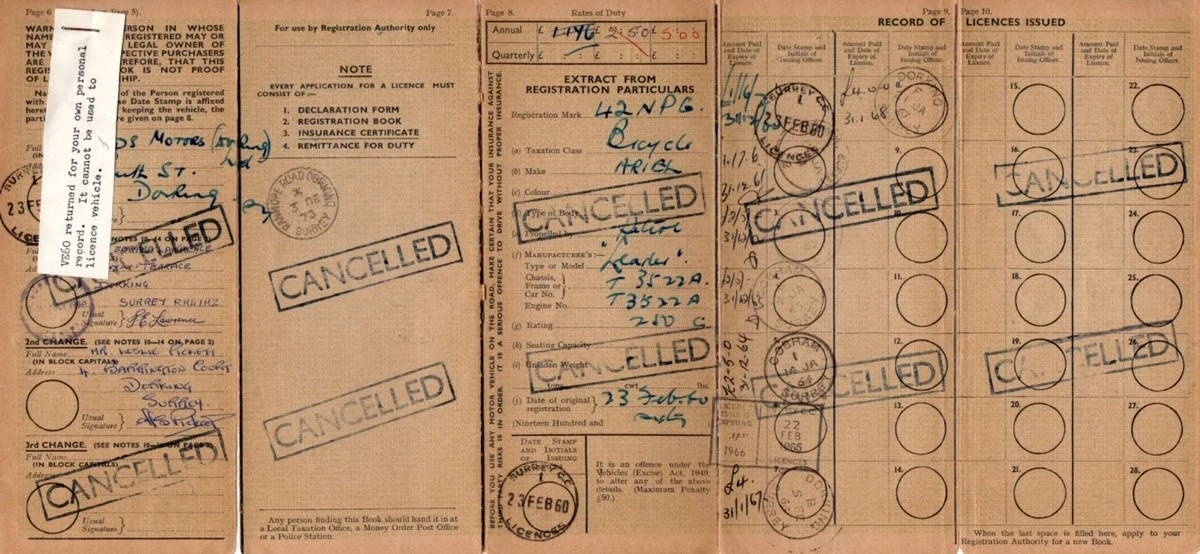 Page 6
Page 5).
WARN
PERSON IN WHOSE
NAME
REGISTERED MAY OR
MAY
LEGAL OWNER OF
THE V
SPECTIVE PURCHASERS
ARE
REFORE, THAT THIS
REGIS
OK IS NOT PROOF
OF L
SHIP.
of the Person registered
Date Stamp is affixed
keeping the vehicle, the
are given on page 8.
VE60 returned for your own personal
record. It cannot be used to
licence vehicle.
DS MOTORS
Ltd
ST.
Dorking
SURREY C.C.
23 FEB 60
LICENCES
CANCELLED
(SEE NOTES 10–14 ON PAGE 2)
TERRACE
DORKING
SURREY RH4 1HZ
Usual
Signature
PELawrence
2nd CHANGE. (SEE NOTES 10—14 ON PAGE 2)
Full Name
MR. LESLIE
(IN BLOCK CAPITALS)
Address
COURT
DORKING
SURREY.
Usual
Signature
3rd CHANGE. (SEE NOTES 10—14 ON PAGE 2)
Full Name
(IN BLOCK CAPITALS)
Address
CANCELLED
Usual
Signature
Page 7.
For use by Registration Authority only
NOTE
EVERY APPLICATION FOR A LICENCE MUST
CONSIST OF:—
1. DECLARATION FORM
2. REGISTRATION BOOK
3. INSURANCE CERTIFICATE
4. REMITTANCE FOR DUTY
RANMORE ROAD DORKING
DE
73
SURREY
CANCELLED
CANCELLED
Any person finding this Book should hand it in at
a Local Taxation Office, a Money Order Post Office
or a Police Station.
Page 8.
Rates of Duty
Annual £ 2.50 £ 5.00
Quarterly £ £ £
EXTRACT FROM
REGISTRATION PARTICULARS
Registration Mark 42 NPG.
(a) Taxation Class Bicycle
(b) Make ARIEL
(c) Colour
CANCELLED
Type of Body
(e) Propelled by Petrol
(f) MANUFACTURER'S:—
Type or Model "Leader".
Chassis,
Frame or
Car No. T 3522A.
Engine No. T3522A
(g) Rating 250 c
(h) Seating Capacity
CANCELLED
(i) Unladen Weight
tons cwt. lbs.
(j) Date of original
registration 23 Feb. 60
(Nineteen Hundred and sixty
DATE STAMP
AND INITIALS
OF ISSUING
SURREY C.C.
23 FEB 60
LICENCES
It is an offence under the
Vehicles (Excise) Act, 1949,
to alter any of the above
details. (Maximum Penalty
£50.)
BEFORE YOU USE ANY MOTOR VEHICLE ON THE ROAD, MAKE CERTAIN THAT YOUR INSURANCE AGAINST
THIRD PARTY RISKS IS IN ORDER. IT IS A SERIOUS OFFENCE TO DRIVE WITHOUT PROPER INSURANCE.
Page 9.
Page 10.
RECORD OF LICENCES ISSUED
Amount Paid
and Date of
Expiry of
Licence.
Date Stamp and
Initials of
Issuing Officer.
Amount Paid
and Date of
Expiry of
Licence.
Date Stamp and
Initials of
Issuing Officer.
Amount Paid
and Date of
Expiry of
Licence.
Date Stamp and
Initials of
Issuing Officer.
Amount Paid
and Date of
Expiry of
Licence.
Date Stamp and
Initials of
Issuing Officer.
SURREY C.C.
1
23 FEB 60
LICENCES
£4.0.0
31.1.68
8.
DORKING
15.
22.
1.17.6
31.12.61
9.
16.
23.
CANCELLED
CANCELLED
3.
10.
17.
24.
4.
COBHAM
11.
18.
25.
£2-5-0
31-12-64
COBHAM
1
JA
64
SURREY
12.
19.
26.
CANCELLED
CANCELLED
LICENCE
ISSUED
EXPIRING
1966
22
FEB
1966
LICENCES
13.
20.
27.
£4.
31/1/67
7.
DORKING
SURREY
14.
21.
28.
When the last space is filled here, apply to your
Registration Authority for a new Book.